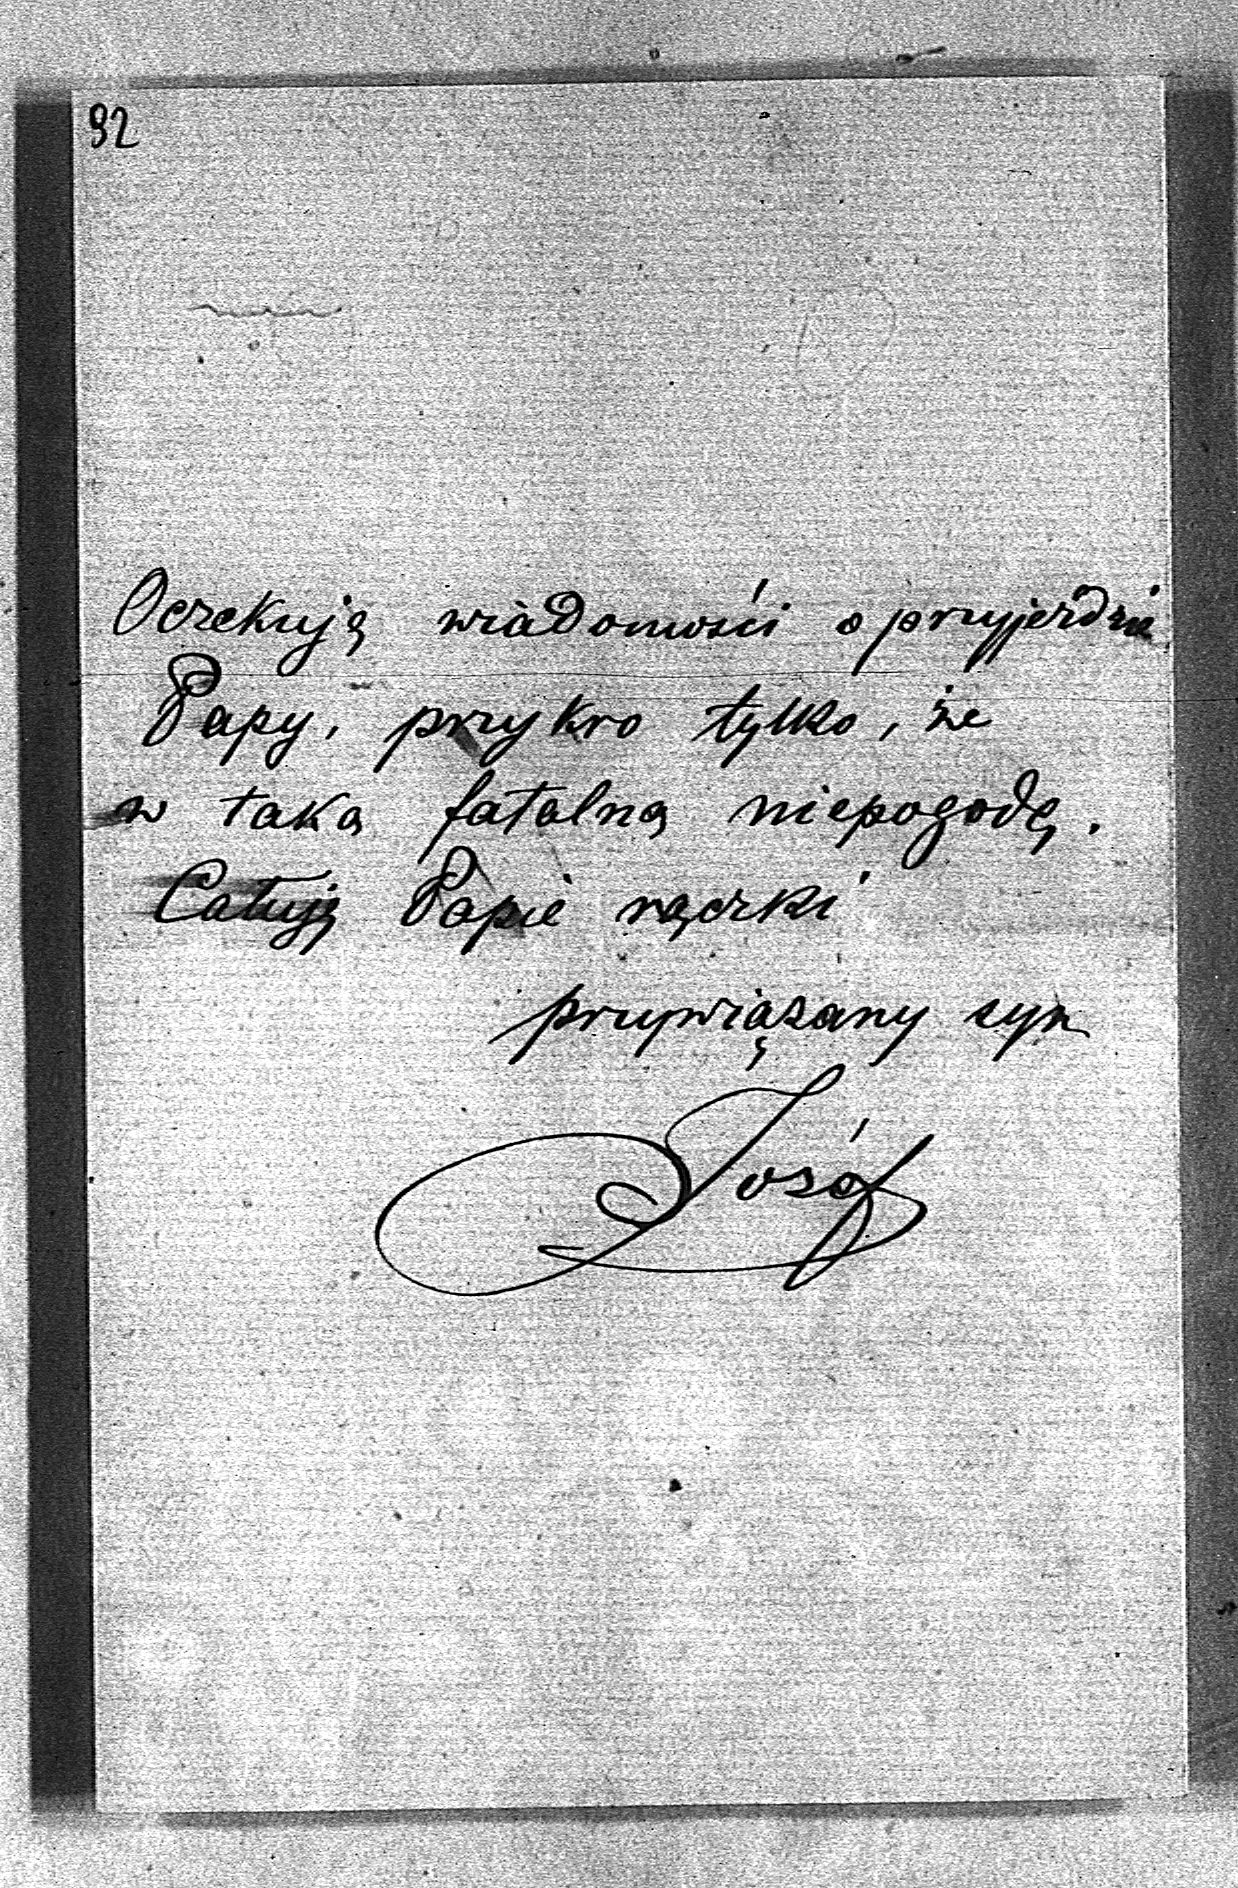 92
Oczekuję wiadomości o przyjeździe
Papy, przykro tylko, że
w taką fatalną niepogodę.
Całuję Papie rączki
przywiązany syn
Józef